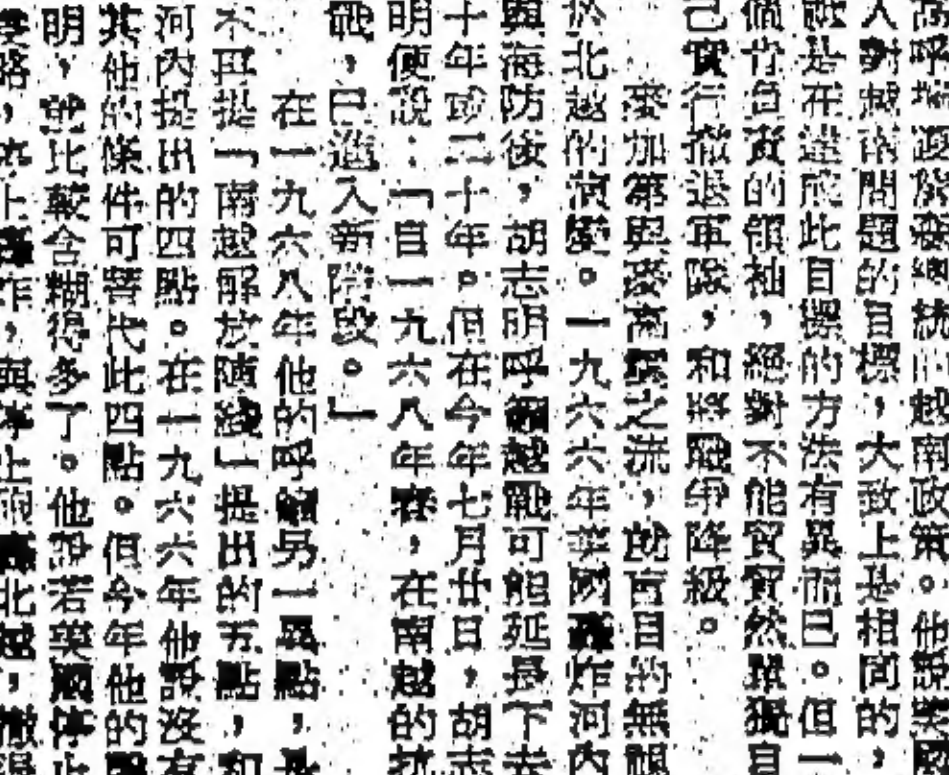 越南政策。他說美國
人對越南問題的目標,大致上是相同的,
是在達成此目標的方法有異而已。但一
個有色的領袖,絕對不能貿貿然單獨自
己實行撤退軍隊,和將戰爭降級。
麥加第與麥高之流,就盲目的無視
於北越的演變。一九六六年美國轟炸河內
與海防後,胡志明呼籲越戰可能延長下去
十年或二十年。但在今年七月廿日,胡志
明便說:「自一九六八年春,在南越的抗
戰,已進入新階段。」
在一九六八年他的呼籲另一要點,是
不再提「南越解放陣綫」提出的五點,和
河內提出的四點。在一九六六年他說沒有
其他的條件可替代此四點。但今年他的
明,就比較含糊得多了。他說若美國停止
,與停止 北越,撤